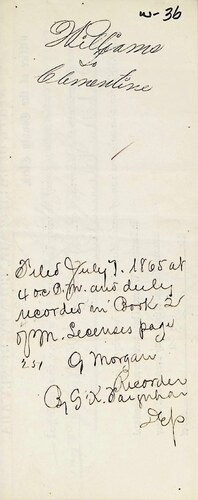 W-36
Williams
to
Clementine
Filed July 7. 1865 at
4 oc P.M. and duly
recorded in Book 2
of M. Licenses page
251
G Morgan
Recorder
By G. K.
Dep